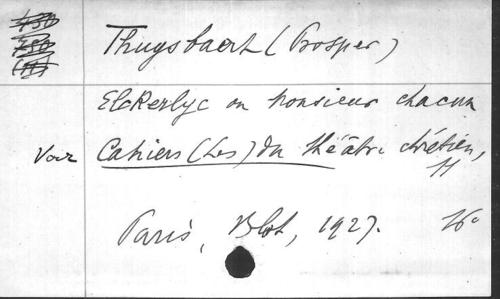 Thuysbaert (Prosper)
Elckerlyc ou Monsieur chacun
Voir Cahiers (Les) du théâtre chrétien,
11
Paris, Blot, 1927. 16°